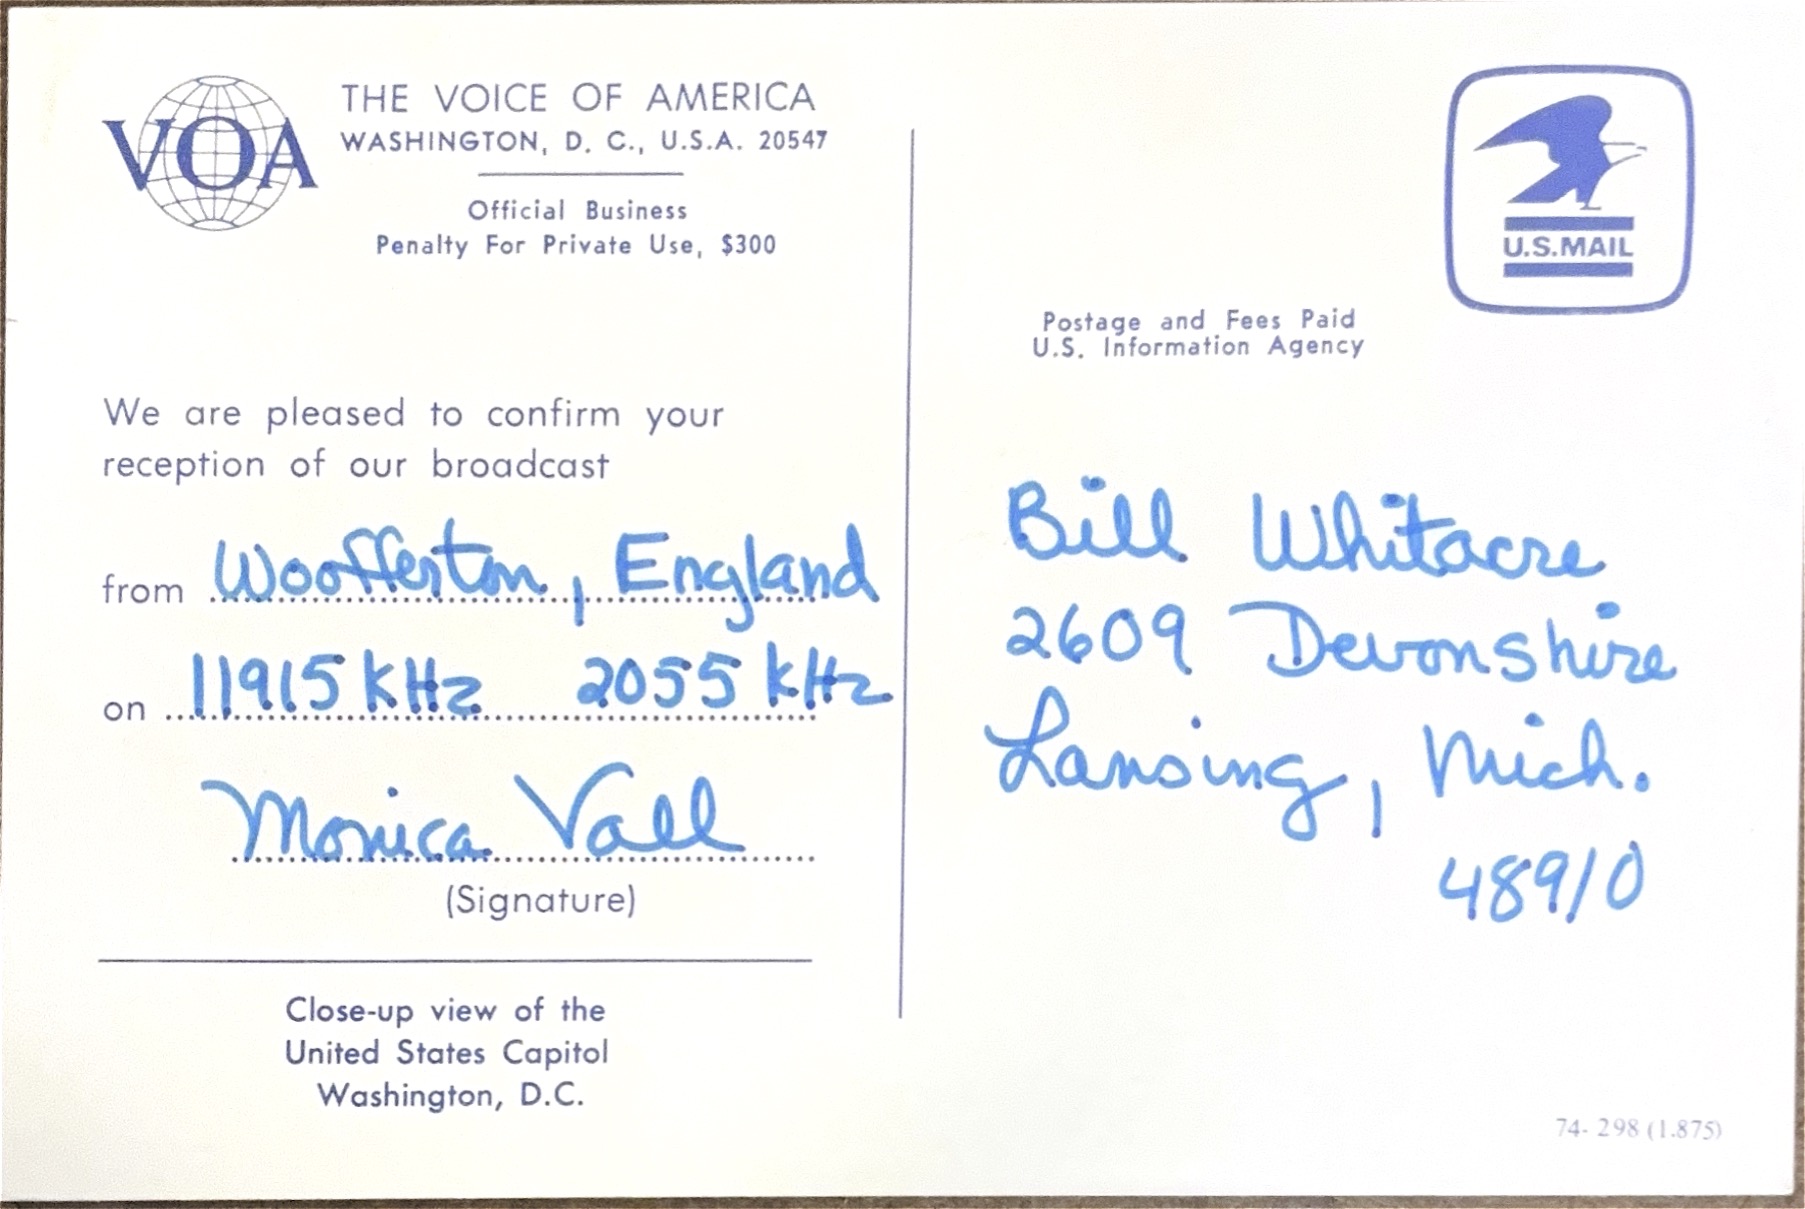 VOA
THE VOICE OF AMERICA
WASHINGTON, D. C., U.S.A. 20547
Official Business
Penalty For Private Use, $300
We are pleased to confirm your
reception of our broadcast
from Woofferton, England
on 11915 kHz 2055 kHz
Monica Vall
(Signature)
Close-up view of the
United States Capitol
Washington, D.C.
U.S.MAIL
Postage and Fees Paid
U.S. Information Agency
Bill Whitacre
2609 Devonshire
Lansing, Mich.
48910
74- 298 (1.875)